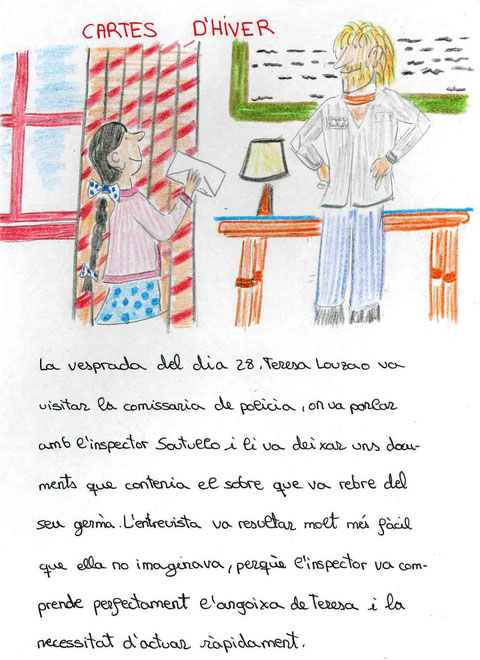 CARTES D'HIVER
La vesprada del dia 28, Teresa Louzao va
visitar la comissaria de policia, on va parlar
amb l'inspector Soutullo i li va deixar uns docu-
ments que contenia el sobre que va rebre del
seu germà. L'entrevista va resultar molt més fàcil
que ella no imaginava, perquè l'inspector va com-
prende perfectament l'angoixa de Teresa i la
necessitat d'actuar ràpidament.